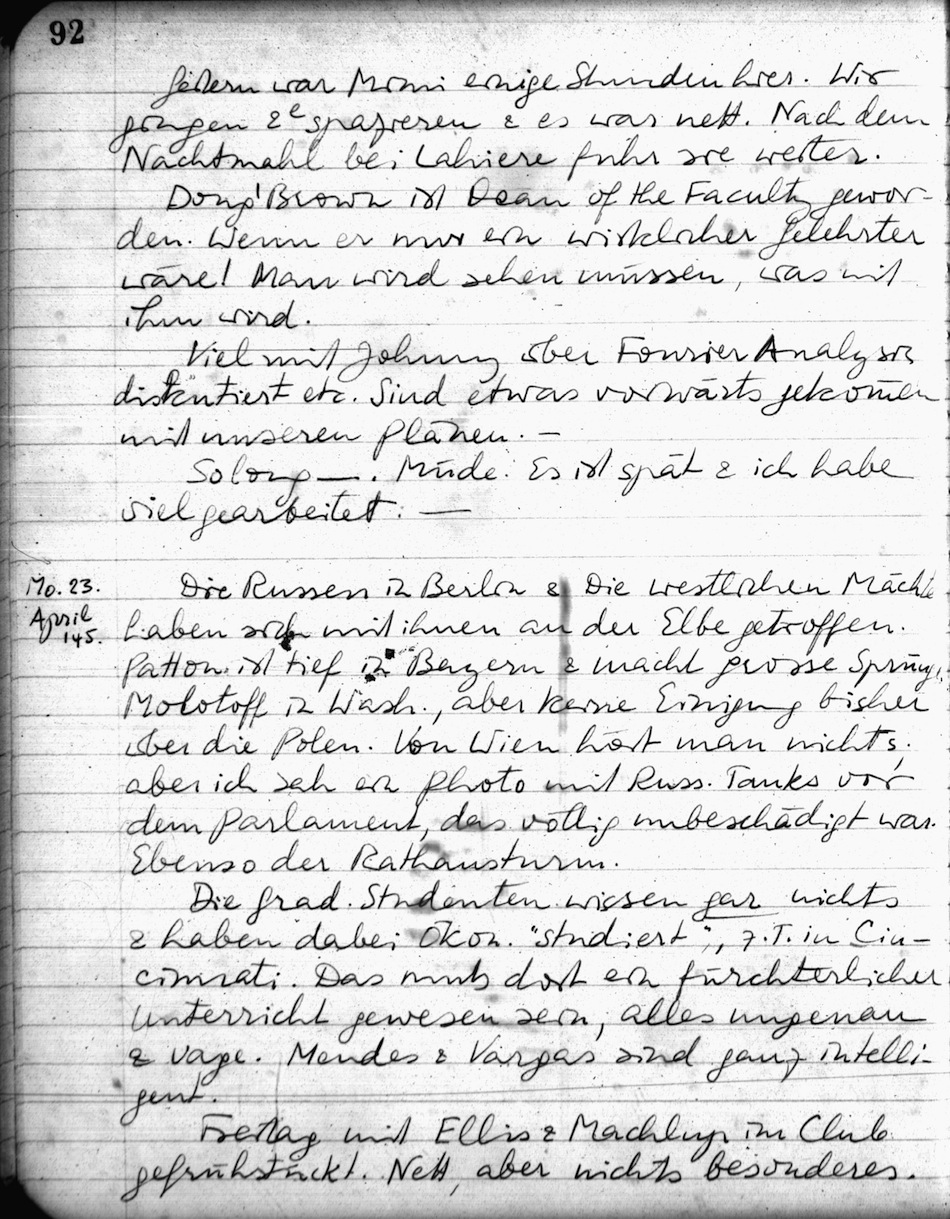 92
Gestern war Mimi einige Stunden hier. Wir
gingen spazieren & es war nett. Nach dem
Nachtmahl bei Lahiere fuhr sie weiter.
Doug Brown ist Dean of the Faculty gewor-
den. Wenn er nur ein wirklicher Gelehrter
wäre! Man wird sehen müssen, was mit
ihm wird.
Viel mit Johnny über Fourier Analysis
diskutiert etc. Sind etwas vorwärts gekom̄en
mit unseren Plänen. —
So long —. Müde. Es ist spät & ich habe
viel gearbeitet. —
Mo. 23.
April
'45.
Die Russen in Berlin & Die westlichen Mächte
haben sich mit ihnen an der Elbe getroffen.
Patton ist tief in Bayern & macht grosse Sprünge.
Molotoff in Wash., aber keine Einigung bisher
über die Polen. Von Wien hört man nichts,
aber ich sah ein Photo mit Russ. Tanks vor
dem Parlament, das völlig unbeschädigt war.
Ebenso der Rathausturm.
Die Grad. Studenten wissen gar nichts
& haben dabei Ökon. "studiert", z.T. in Cin-
cinnati. Das muss dort ein fürchterlicher
Unterricht gewesen sein, alles ungenau
& vage. Mendes & Vargas sind ganz intelli-
gent.
Freitag mit Ellis & Machlup im Club
gefrühstückt. Nett, aber nichts besonderes.